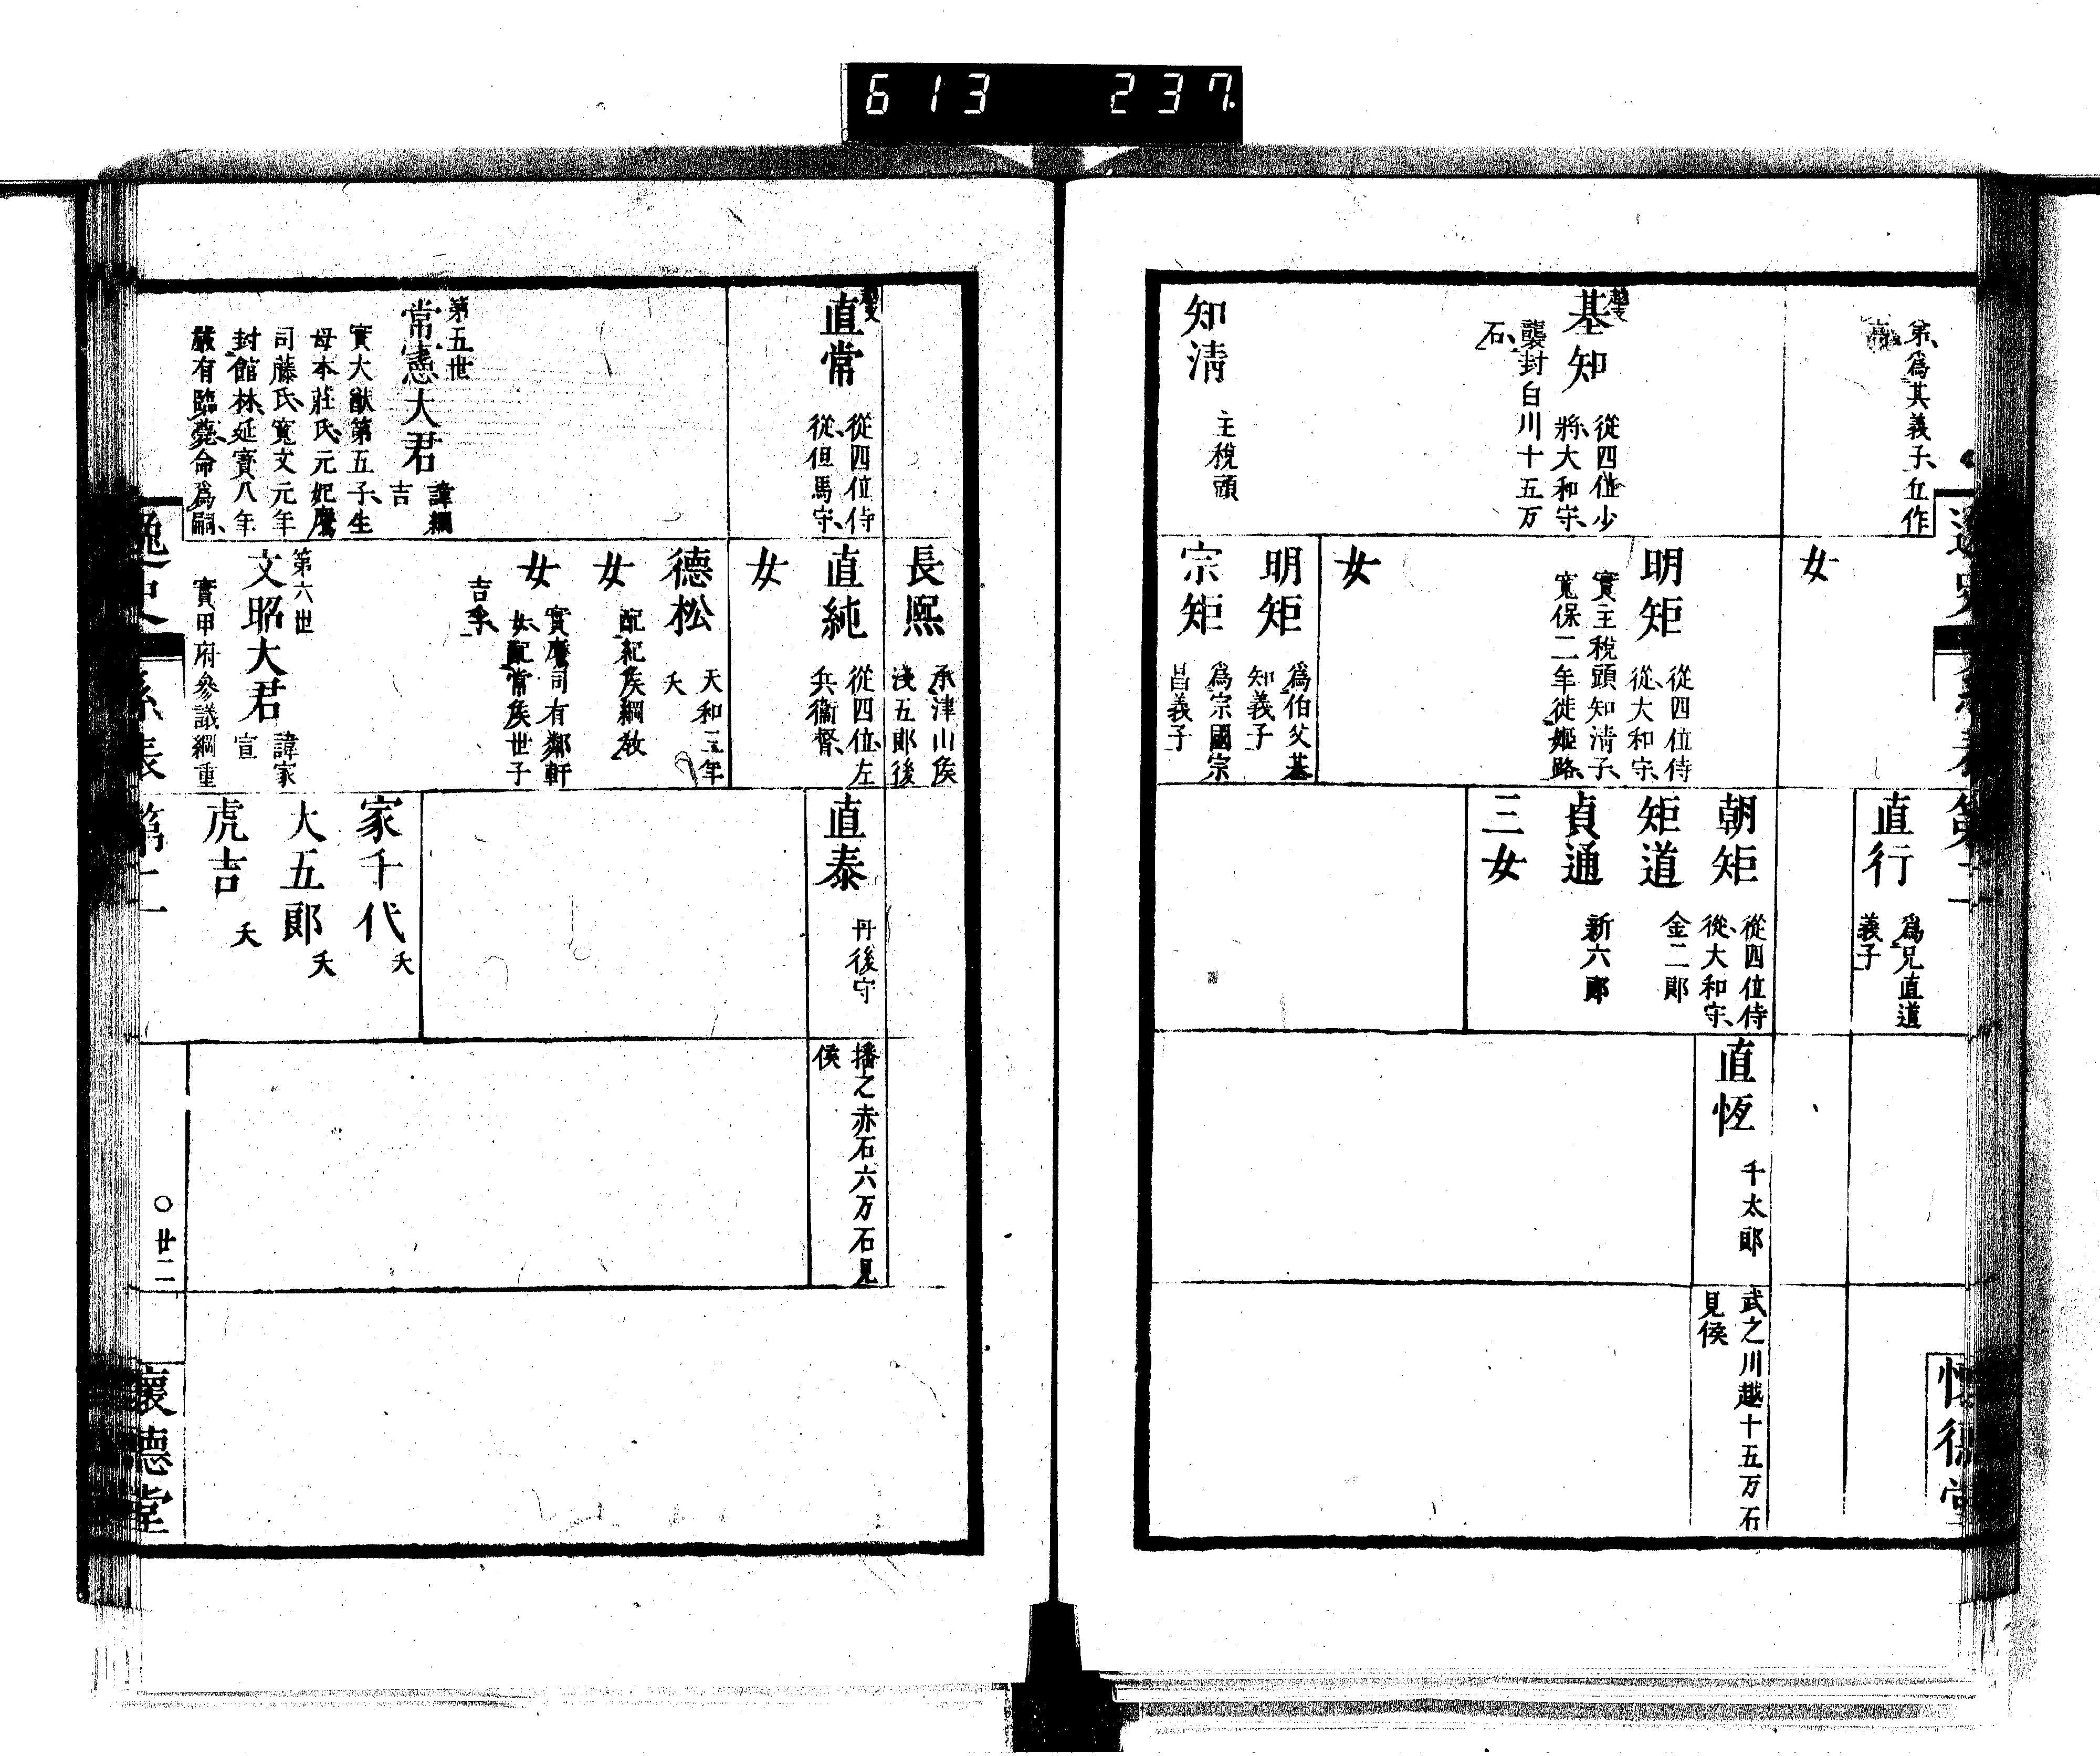 613 237
第爲其義子丘作
越支
基知
從四位少
將大和守
襲封白川十五万
石
知清
主稅頭
女
明矩
從四位侍
從大和守
實主稅頭知清子
寬保二年徙姬路
女
明矩
爲伯父基
知義子
宗矩
爲宗國宗
昌義子
直行
爲兄直道
義子
朝矩
從四位侍
從大和守
矩道
金二郞
貞通
新六郞
三女
直恆
千太郞
武之川越十五万石
見侯
懷德堂
越支
直常
從四位侍
從但馬守
第五世
常憲大君
諱綱
吉
實大猷第五子生
母本莊氏元妃鷹
司藤氏寬文元年
封館林延寶八年
嚴有臨薨命爲嗣
長熙
承津山侯
淺五郞後
直純
從四位左
兵衞督
女
德松
天和三年
夭
女
配紀侯綱敎
女
實鷹司有鄰軒
女配常侯世子
吉孚
第六世
文昭大君
諱家
宣
實甲府參議綱重
直泰
丹後守
家千代
夭
大五郞
夭
虎吉
夭
播之赤石六万石見
侯
逸史
系表第二
〇廿二
懷德堂